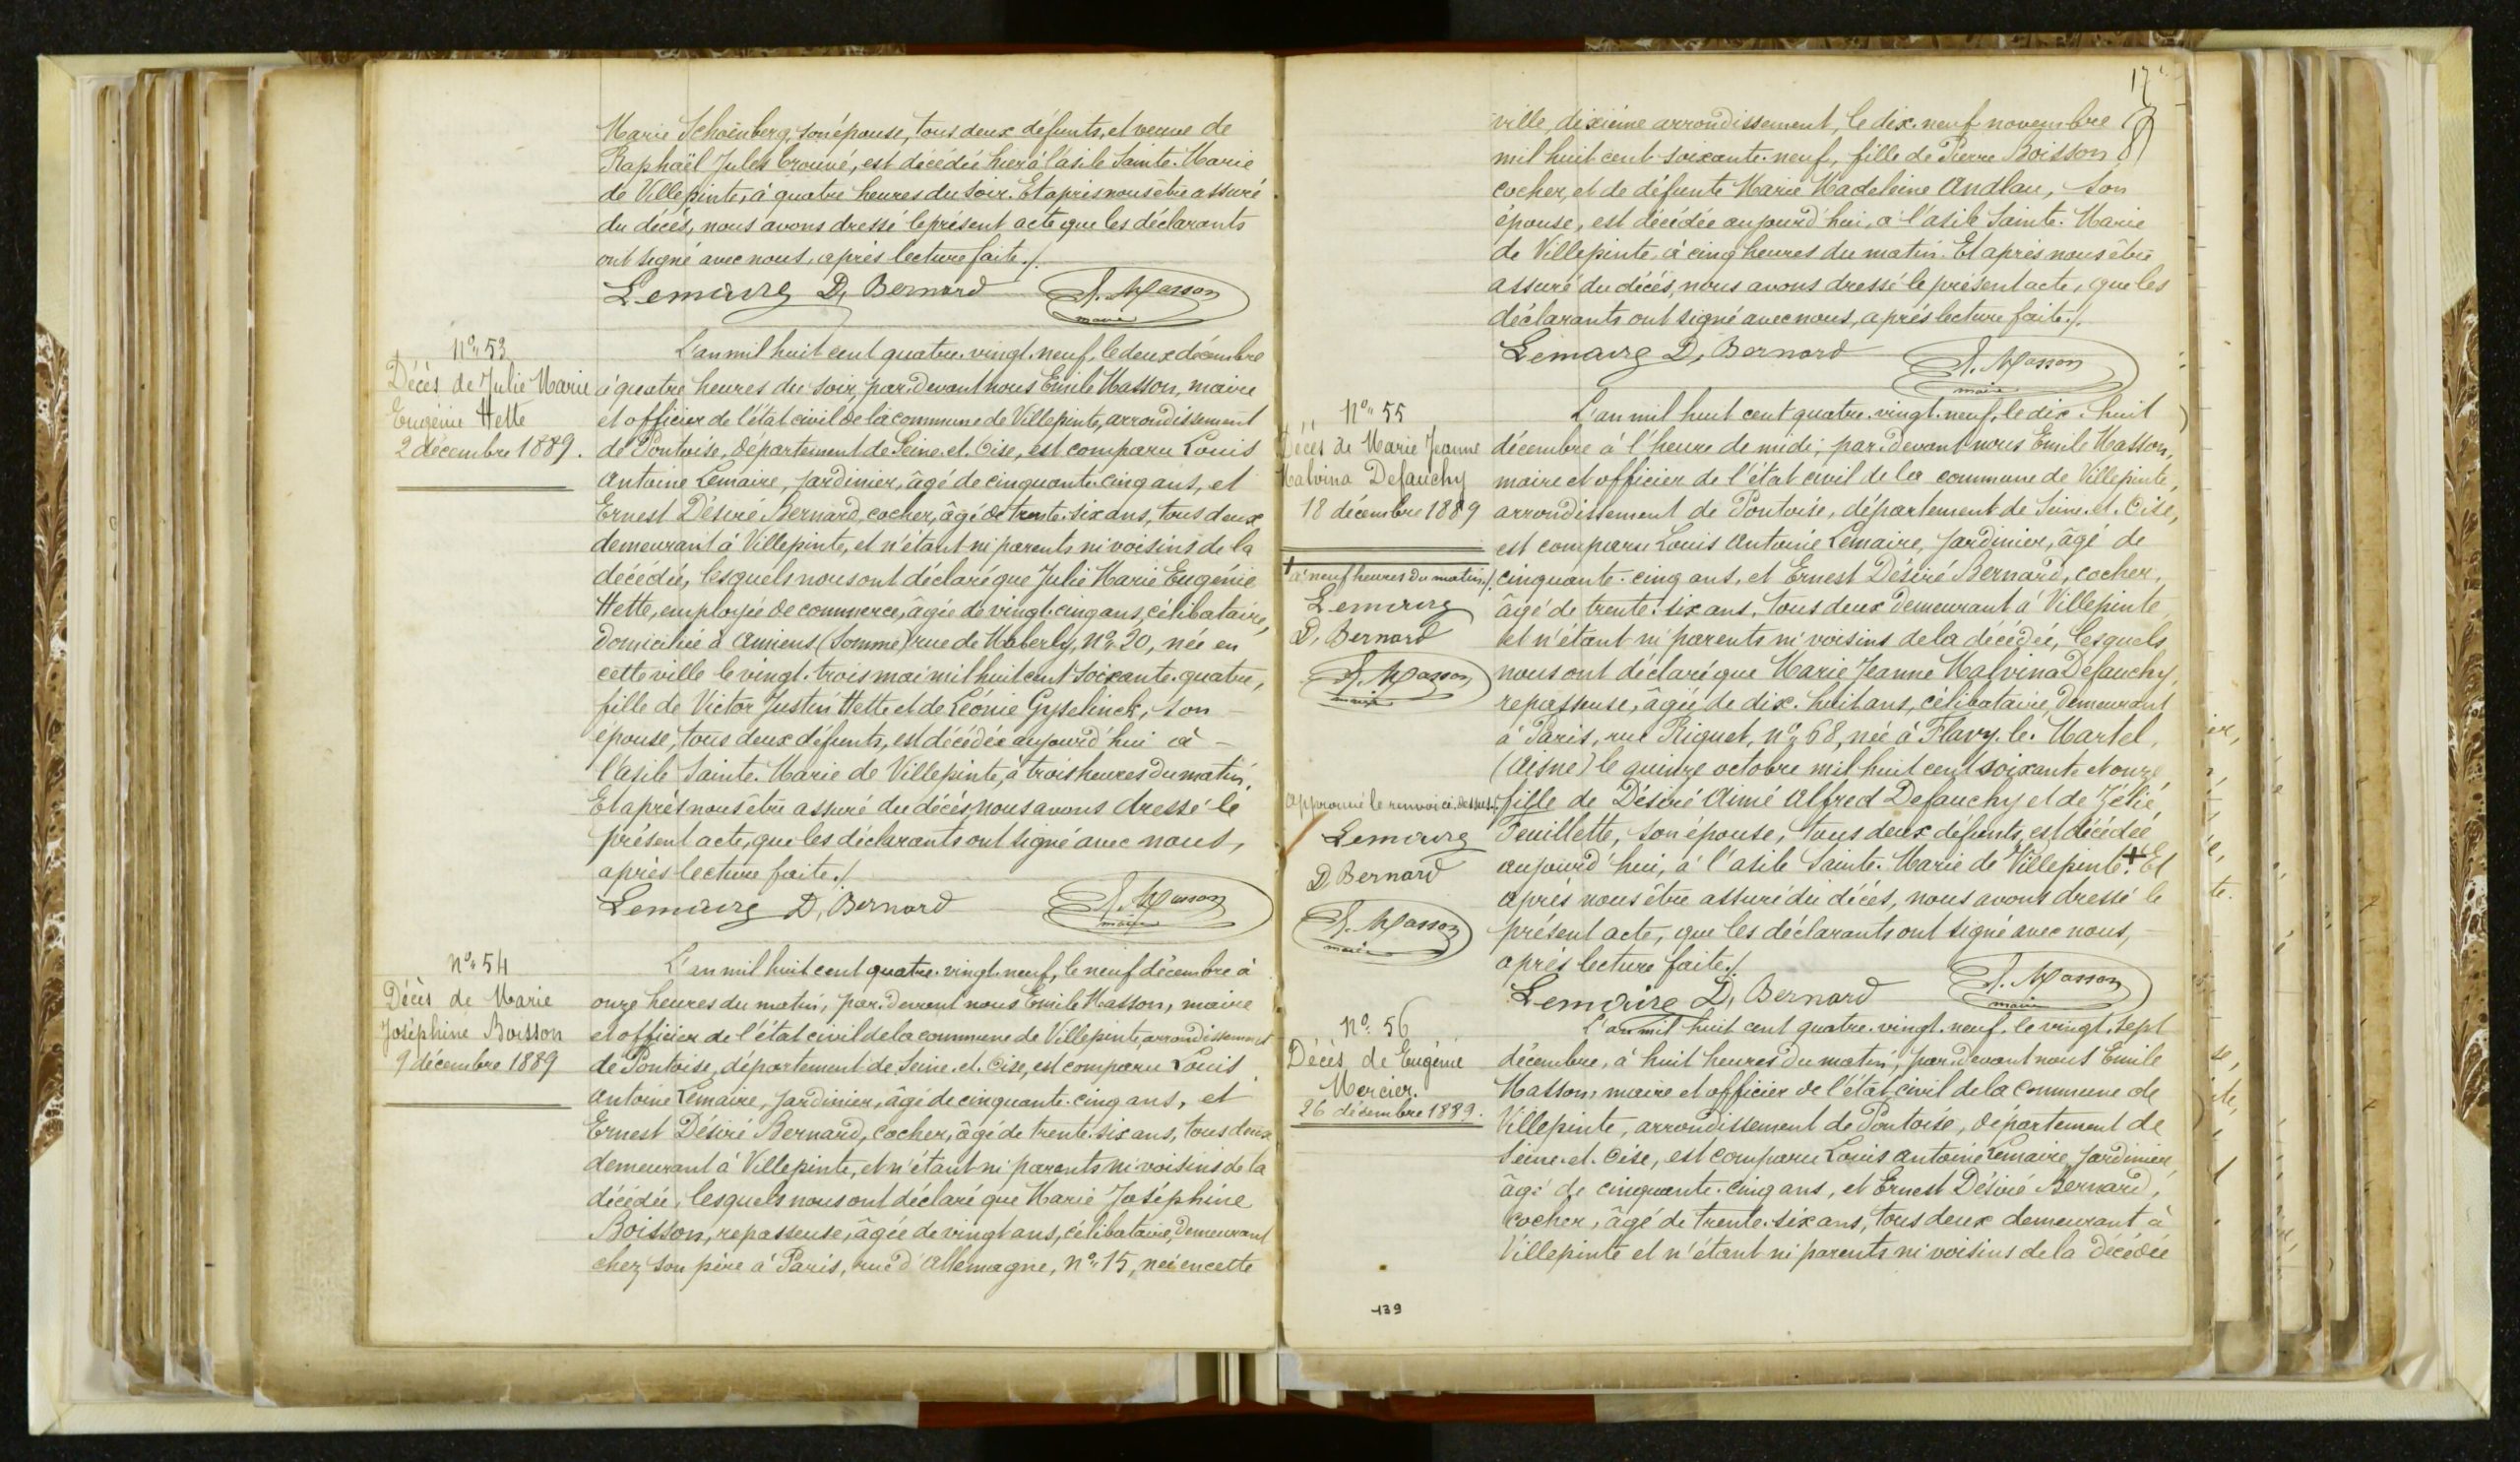 Marie Schoënberg, son épouse, tous deux défunts, et veuve de
Raphaël Jules Crouvé, est décédée hier à l'asile Sainte-Marie
de Villepinte, à quatre heures du soir. Et après nous être assuré
du décès, nous avons dressé le présent acte que les déclarants
ont signé avec nous, après lecture faite./.
Lemaire D, Bernard E. Masson
maire
N° 53
Décès de Julie Marie
Eugénie Hette
2 décembre 1889.
L'an mil huit cent quatre-vingt-neuf, le deux décembre
à quatre heures du soir, par-devant nous Emile Masson, maire
et officier de l'état civil de la commune de Villepinte, arrondissement
de Pontoise, département de Seine-et-Oise, est comparu Louis
Antoine Lemaire, jardinier, âgé de cinquante-cinq ans, et
Ernest Désiré Bernard, cocher, âgé de trente-six ans, tous deux
demeurant à Villepinte, et n'étant ni parents ni voisins de la
décédée, lesquels nous ont déclaré que Julie Marie Eugénie
Hette, employée de commerce, âgée de vingt-cinq ans, célibataire,
domiciliée à Amiens (Somme) rue de Maberly, N° 20, née en
cette ville le vingt-trois mai mil huit cent soixante-quatre,
fille de Victor Justin Hette et de Léonie Gyselinck, son
épouse, tous deux défunts, est décédée aujourd'hui à -
l'asile Sainte-Marie de Villepinte, à trois heures du matin.
Et après nous être assuré du décès, nous avons dressé le
présent acte, que les déclarants ont signé avec nous,
après lecture faite./.
Lemaire D, Bernard E. Masson
maire
N° 54
Décès de Marie
Joséphine Boisson
9 décembre 1889
L'an mil huit cent quatre-vingt-neuf, le neuf décembre à
onze heures du matin, par-devant nous Emile Masson, maire
et officier de l'état civil de la commune de Villepinte, arrondissement
de Pontoise, département de Seine-et-Oise, est comparu Louis
Antoine Lemaire, jardinier, âgé de cinquante-cinq ans, et
Ernest Désiré Bernard, cocher, âgé de trente-six ans, tous deux
demeurant à Villepinte, et n'étant ni parents ni voisins de la
décédée, lesquels nous ont déclaré que Marie Joséphine
Boisson, repasseuse, âgée de vingt ans, célibataire, demeurant
chez son père à Paris, rue d'Allemagne, N° 15, née en cette
17
ville, dixième arrondissement, le dix-neuf novembre
mil huit cent soixante-neuf, fille de Pierre Boisson
cocher, et de défunte Marie Madeleine Andlau, son
épouse, est décédée aujourd'hui, à l'asile Sainte-Marie
de Villepinte, à cinq heures du matin. Et après nous être
assuré du décès, nous avons dressé le présent acte, que les
déclarants ont signé avec nous, après lecture faite./.
Lemaire D, Bernard E. Masson
maire
N° 55
Décès de Marie Jeanne
Malvina Defauchy
18 décembre 1889
L'an mil huit cent quatre-vingt-neuf, le dix-huit
décembre à l'heure de midi; par-devant nous Emile Masson,
maire et officier de l'état civil de la commune de Villepinte,
arrondissement de Pontoise, département de Seine-et-Oise,
est comparu Louis Antoine Lemaire, jardinier, âgé de
cinquante-cinq ans, et Ernest Désiré Bernard, cocher,
âgé de trente-six ans, tous deux demeurant à Villepinte
et n'étant ni parents ni voisins de la décédée, lesquels
nous ont déclaré que Marie Jeanne Malvina Defauchy,
repasseuse, âgée de dix-huit ans, célibataire, demeurant
à Paris, rue Riquet, n° 68, née à Flavy-le-Martel,
(Aisne) le quinze octobre mil huit cent soixante et onze,
fille de Désiré Aimé Alfred Defauchy et de Zélie
Feuillette, son épouse, tous deux défunts, est décédée
aujourd'hui, à l'asile Sainte-Marie de Villepinte.+ Et
après nous être assuré du décès, nous avons dressé le
présent acte, que les déclarants ont signé avec nous,
après lecture faite./.
Lemaire D, Bernard E. Masson
maire
+ à neuf heures du matin./.
Lemaire
D, Bernard
E. Masson
maire
Approuvé le renvoi ci-dessus./.
Lemaire
D Bernard
E. Masson
maire
N° 56
Décès de Eugénie
Mercier.
26 décembre 1889.
L'an mil huit cent quatre-vingt-neuf, le vingt-sept
décembre, à huit heures du matin, par-devant nous Emile
Masson, maire et officier de l'état civil de la commune de
Villepinte, arrondissement de Pontoise, département de
Seine-et-Oise, est comparu Louis Antoine Lemaire, jardinier,
âgé de cinquante-cinq ans, et Ernest Désiré Bernard,
cocher, âgé de trente-six ans, tous deux demeurant à
Villepinte et n'étant ni parents ni voisins de la décédée
139